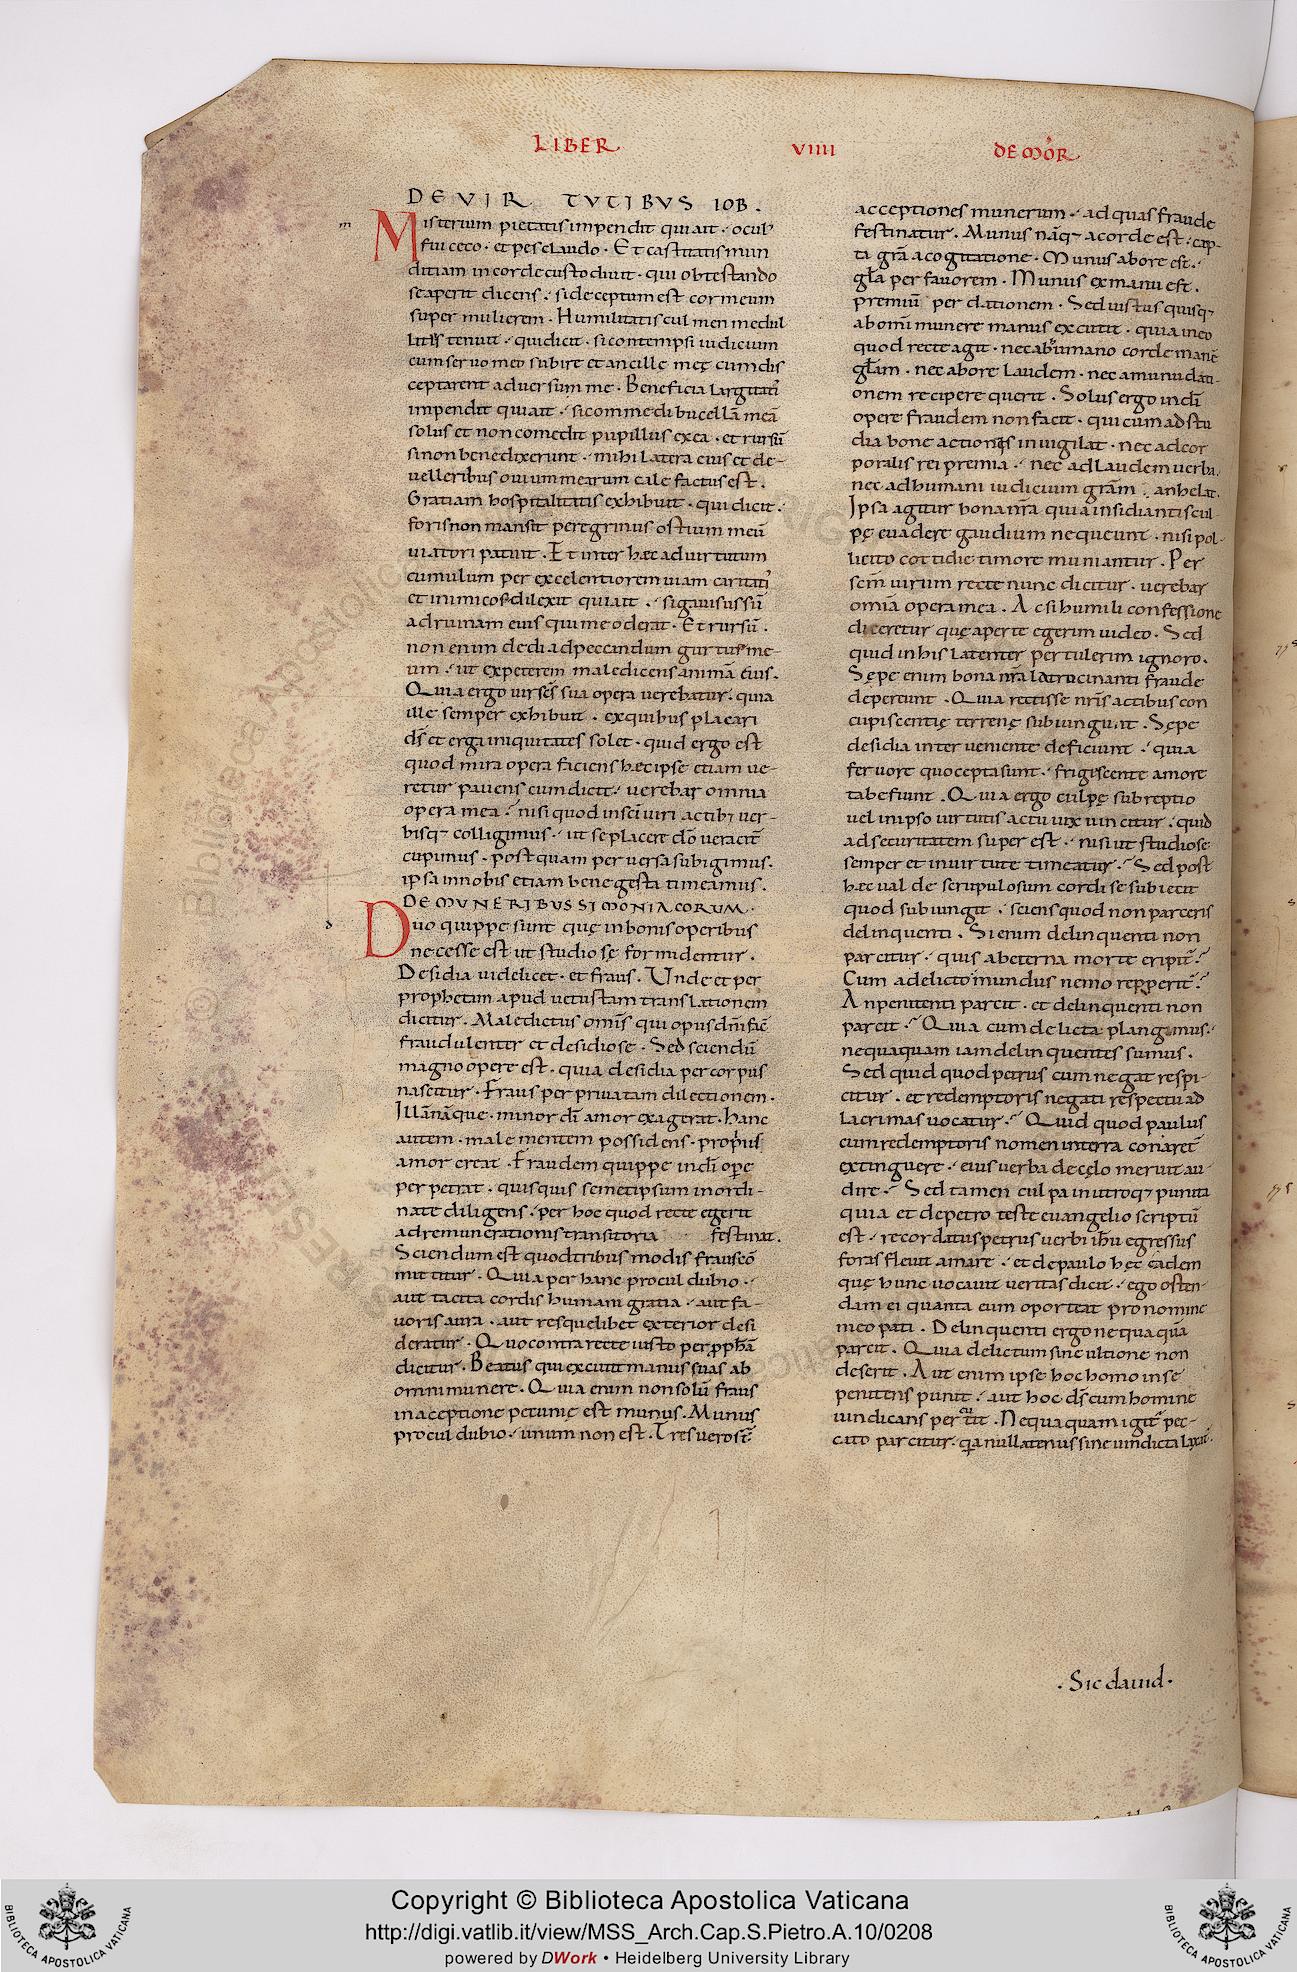 LIBER VIIII DE MOR̄
DE VIRTVTIBVS IOB.
Misterium pietatis impendit qui ait · ocul'
fui ceco · et pes claudo · Et castitatis mun
ditiam in corde custodivit · qui obtestando
se aperit dicens · si deceptum est cor meum
super mulierem · Humilitatis culmen medul
litus tenuit · qui dicit · si contempsi iudicium
cum servo meo subire et ancille męę cum dis
ceptarent adversum me · Beneficia largitati'
impendit qui ait · si commedi bucellā meā
solus et non comedit pupillus ex ea · et rursū
si non benedixerunt · mihi latera eius et de-
velleribus ovium mearum calefactus est .
Gratiam hospitalitatis exhibuit · qui dicit ·
foris non mansit peregrinus ostium meū
viatori patuit . Et inter hęc ad virtutum
cumulum per excelentiorem viam caritati'
et inimicos dilexit qui ait · si gavisus sū
ad ruinam eius qui me oderat · Et rursū .
non enim dedi ad peccandum guttur me-
um · ut expeterem maledicens animā eius .
Quia ergo vir sēs sua opera verebatur · quia
ille semper exhibuit · ex quibus placari
dš et erga iniquitates solet · quid ergo est
quod mira opera faciens hęc ipse etiam ve-
retur pavens cum dicit · verebar omnia
opera mea · nisi quod in sc̄i viri actib; ver-
bisq; colligimus · ut se placere dō veracit̄
cupimus · postquam perversa subigimus .
ipsa in nobis etiam bene gesta timeamus .
DE MVNERIBVS SIMONIACORVM .
Duo quippe sunt quę in bonis operibus
necesse est ut studiose formidentur .
Desidia videlicet · et fraus . Unde et per
prophetam apud vetustam translationem
dicitur . Maledictus om̄is qui opus dn̄i fac̄
fraudulenter et desidiose · Sed sciendū
magnoopere est · quia desidia per corpus
nascitur · Fraus per privatam dilectionem ·
Illā nāque · minor dī amor exagerat · hanc
autem · male mentem possidens · proprius
amor creat · Fraudem quippe in dī ope
perpetrat · quisquis semetipsum inordi-
nate diligens · per hoc quod recte egerit
ad remunerationis transitoria festinat .
Sciendum est quod tribus modis fraus cō
mittitur · Quia per hanc procul dubio ·
aut tacita cordis humani gratia · aut fa-
voris aura · aut res quelibet exterior desi
deratur · Quo contra recte iusto per pphā
dicitur · Beatus qui excutit manus suas ab
omni munere · Quia enim non solū fraus
in acceptione pecunię est munus . Munus
procul dubio · unum non est . Tres vero s̄t
acceptiones munerum · ad quas fraude
festinatur . Munus nāq; a corde est · cap-
ta grā a cogitatione · Munus ab ore est ·
glā per favorem · Munus ex manu est .
premiū per dationem · Sed iustus quisq;
ab om̄i munere manus excutit · quia in eo
quod recte agit · nec ab humano corde inanē
glām · nec ab ore laudem · nec a manu dati-
onem recipere querit . Solus ergo in dī
opere fraudem non facit · qui cum ad stu
dia bone actionis invigilat · nec ad cor
poralis rei premia · nec ad laudem verba
nec ad humani iudicium grām · anhelat .
Ipsa agitur bona nrā quia insidianti cul-
pę evadere gaudium nequeunt · nisi pol-
licito cottidie timore muniantur . Per
sc̄m virum recte nunc dicitur · verebar
omīa opera mea . Ac si humili confessione
diceretur quę aperte egerim video · Sed
quid in his latenter pertulerim ignoro .
Sępe enim bona nrā latrocinanti fraude
depereunt · Quia rectisse nrīs actibus con
cupiscentię terrenę subiungunt . Sępe
desidia interveniente deficiunt · quia
fervore quo cepta sunt · frigescente amore
tabefiunt . Quia ergo culpę subreptio
vel in ipso virtutis actu vix vincitur · quid
ad securitatem superest · nisi ut studiose
semper et in virtute timeatur · Sed post
hęc valde scrupulosum cordi se subiecit
quod subiungit · sciens quod non parceris
delinquenti . Si enim delinquenti non
parcitur · quis ab eterna morte eripit̄
Cum a delicto mundus nemo repperit̄
An penitenti parcit · et delinquenti non
parcit · Quia cum delicta plangimus ·
nequaquam iam delinquentes sumus .
Sed quid quod petrus cum negat respi-
citur · et redemptoris negati respectu ad
lacrimas vocatur · Quid quod paulus
cum redemptoris nomen in terra conaret̄
extinguere · eius verba de cęlo meruit au-
dire · Sed tamen culpa in utroq; punita
quia et de petro teste evangelio scriptū
est · recordatus petrus verbi ihū egressus
foras flevit amare · et de paulo hęc eadem
quę hunc vocavit veritas dicit · ego osten-
dam ei quanta eum oporteat pro nomine
meo pati . Delinquenti ergo nequaquā
parcit . Quia delictum sine ultione non
deserit . Aut enim ipse hoc homo in se
penitens punit · aut hoc dš cum homine
vindicans percutit . Nequaquam igit̄ pec-
cato parcitur · quia nullatenus sine vindicta laxat̄ .
· Sic david ·
Copyright © Biblioteca Apostolica Vaticana
http://digi.vatlib.it/view/MSS_Arch.Cap.S.Pietro.A.10/0208
powered by DWork • Heidelberg University Library
BIBLIOTECA APOSTOLICA VATICANA
BIBLIOTECA APOSTOLICA VATICANA